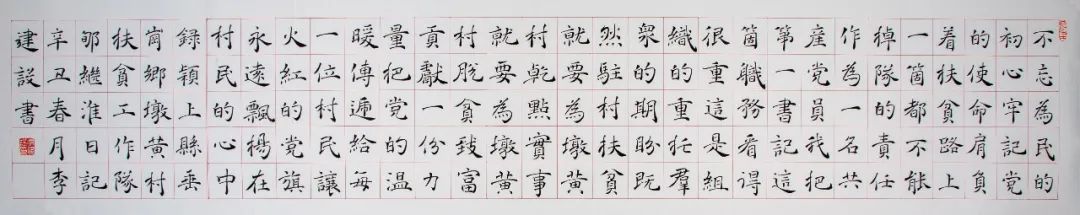 不忘為民的
初心牢記黨
的使命肩負
着扶貧路上
一箇都不能
掉隊的責任
作為一名共
產黨員我把
第一書記這
箇職務看得
很重這是組
織的重托羣
眾的期盼既
然駐村扶貧
就要為墩黃
村乾點實事
就要為墩黃
村脫貧致富
貢獻一份力
量把黨的溫
暖傳遞給每
一位村民讓
火紅的黨旗
永遠飄楊在
村民的心中
錄潁上縣垂
崗鄉墩黃村
扶貧工作隊
郇繼淮日記
辛丑春月李
建設書